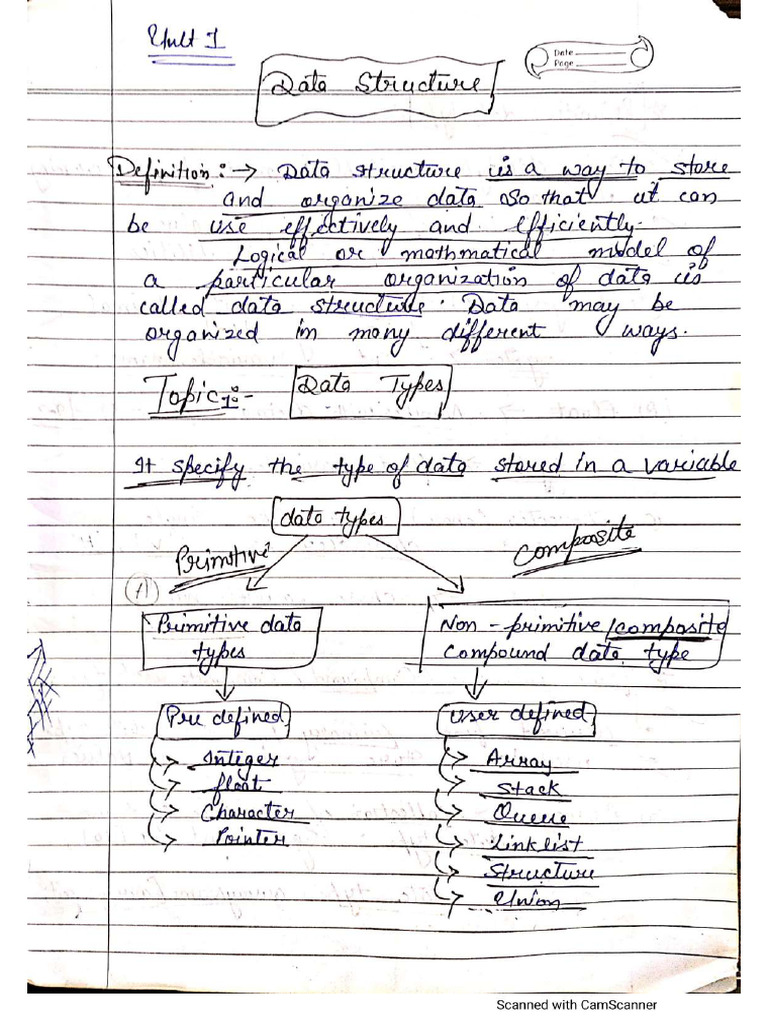 Unit 1
Date
Page
Data Structure
Definition:→ Data structure is a way to store
and organize data so that it can
be use effectively and efficiently.
Logical or mathmatical model of
a particular organization of data is
called data structure. Data may be
organized in many different ways.
Topic 1:- Data Types
It specify the type of data stored in a variable
data types
Primitive Composite
(A)
Primitive data Non-primitive/composite
types compound data type
Pre defined User defined
Integer Array
float Stack
Character Queue
Pointer Link list
Structure
Union
Scanned with CamScanner